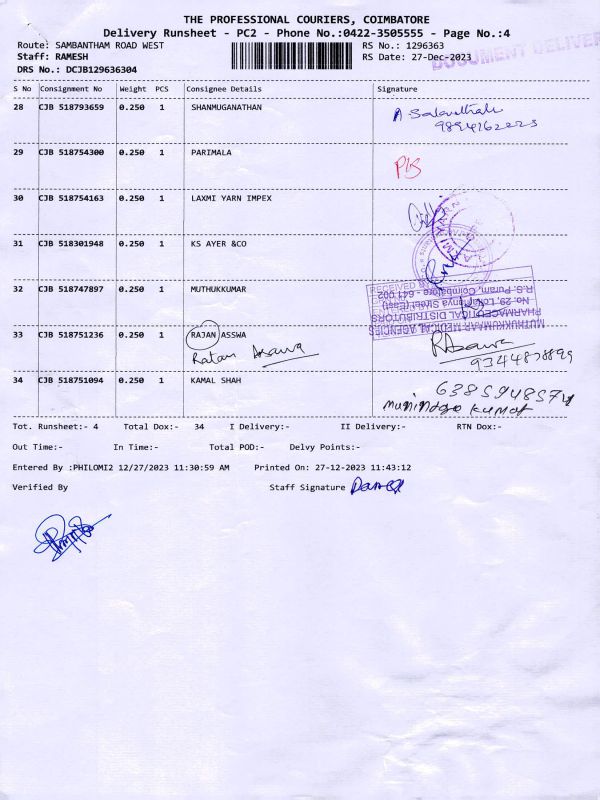 THE PROFESSIONAL COURIERS, COIMBATORE
Delivery Runsheet - PC2 - Phone No.:0422-3505555 - Page No.:4
Route: SAMBANTHAM ROAD WEST RS No.: 1296363
Staff: RAMESH RS Date: 27-Dec-2023
DOCUMENT DELIVER
DRS No.: DCJB129636304
S No Consignment No Weight PCS Consignee Details Signature
28 CJB 518793659 0.250 1 SHANMUGANATHAN
29 CJB 518754300 0.250 1 PARIMALA
30 CJB 518754163 0.250 1 LAXMI YARN IMPEX
31 CJB 518301948 0.250 1 KS AYER &CO
32 CJB 518747897 0.250 1 MUTHUKKUMAR
RECEIVED
MUTHUKKUMAR MEDICAL AGENCIES
PHARMACEUTICAL DISTRIBUTORS
No. 29, Lokamanya Street (East)
R.S. Puram, Coimbatore - 641 002
33 CJB 518751236 0.250 1 RAJAN ASSWA
Ratan Asawa RAsawa
34 CJB 518751094 0.250 1 KAMAL SHAH
kumar
Tot. Runsheet:- 4 Total Dox:- 34 I Delivery:- II Delivery:- RTN Dox:-
Out Time:- In Time:- Total POD:- Delvy Points:-
Entered By :PHILOMI2 12/27/2023 11:30:59 AM Printed On: 27-12-2023 11:43:12
Verified By Staff Signature